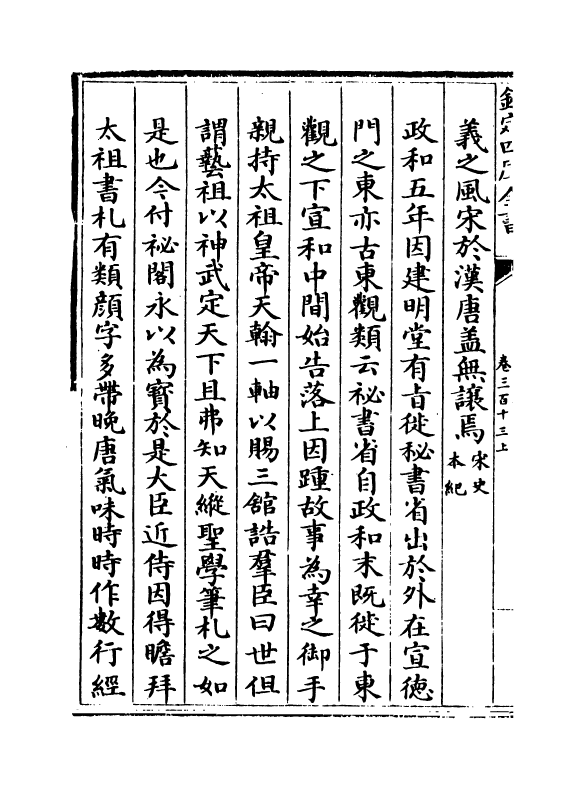 欽定四庫全書
卷三百十三上
義之風宋於漢唐盖無讓焉宋史本紀
政和五年因建明堂有旨徙秘書省出於外在宣德
門之東亦古東觀類云祕書省自政和末既徙于東
觀之下宣和中間始告落上因踵故事為幸之御手
親持太祖皇帝天翰一軸以賜三舘誥羣臣曰世但
謂藝祖以神武定天下且弗知天縱聖學筆札之如
是也今付祕閣永以為寳於是大臣近侍因得瞻拜
太祖書札有類顔字多帶晩唐氣味時時作數行經